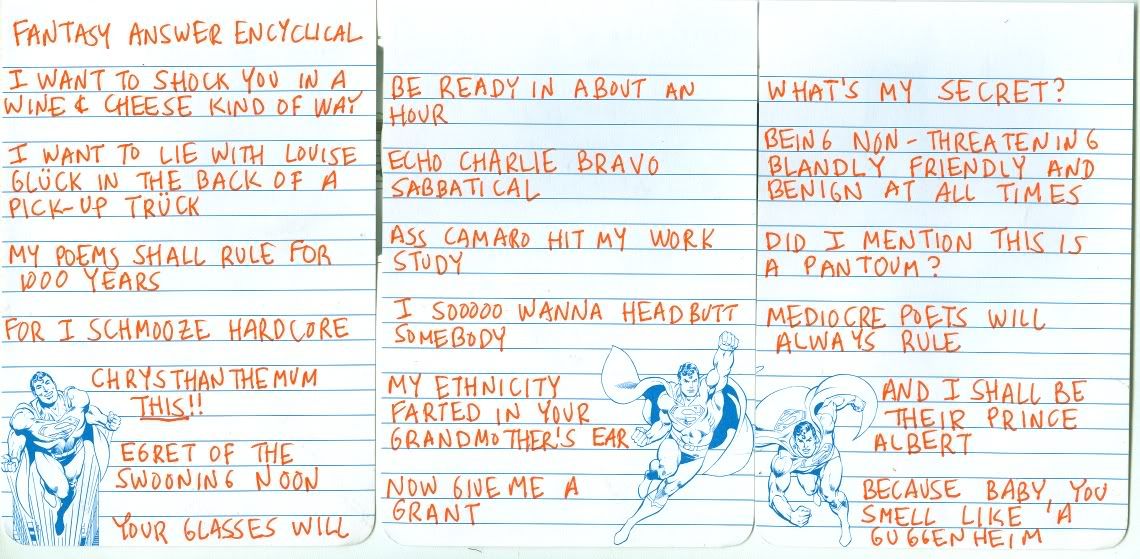 FANTASY ANSWER ENCYCLICAL
I WANT TO SHOCK YOU IN A
WINE & CHEESE KIND OF WAY
I WANT TO LIE WITH LOUISE
GLÜCK IN THE BACK OF A
PICK-UP TRÜCK
MY POEMS SHALL RULE FOR
1000 YEARS
FOR I SCHMOOZE HARDCORE
CHRYSTHANTHEMUM
THIS!!
EGRET OF THE
SWOONING NOON
YOUR GLASSES WILL
BE READY IN ABOUT AN
HOUR
ECHO CHARLIE BRAVO
SABBATICAL
ASS CAMARO HIT MY WORK
STUDY
I SOOOOO WANNA HEADBUTT
SOMEBODY
MY ETHNICITY
FARTED IN YOUR
GRANDMOTHER'S EAR
NOW GIVE ME A
GRANT
WHAT'S MY SECRET?
BEING NON-THREATENING
BLANDLY FRIENDLY AND
BENIGN AT ALL TIMES
DID I MENTION THIS IS
A PANTOUM?
MEDIOCRE POETS WILL
ALWAYS RULE
AND I SHALL BE
THEIR PRINCE
ALBERT
BECAUSE BABY, YOU
SMELL LIKE A
GUGGENHEIM